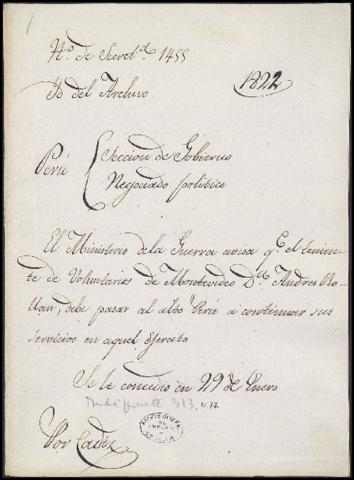 N.º de Secret.ª 1455
Yd del Archivo
1822
Perú
Seccion de Gobierno
Negociado politico
El Ministerio de la Guerra avisa q.e el tenien-
te de Voluntarios de Montevideo D.n Andres Ro-
uan, debe pasar al alto Perú a continuar sus
servicios en aquel Ejercito
Se le concedio en 29 de Enero
Indiferente 313, N.77
ARCHIVO GRAL DE INDIAS SEVILLA
Por Cadiz